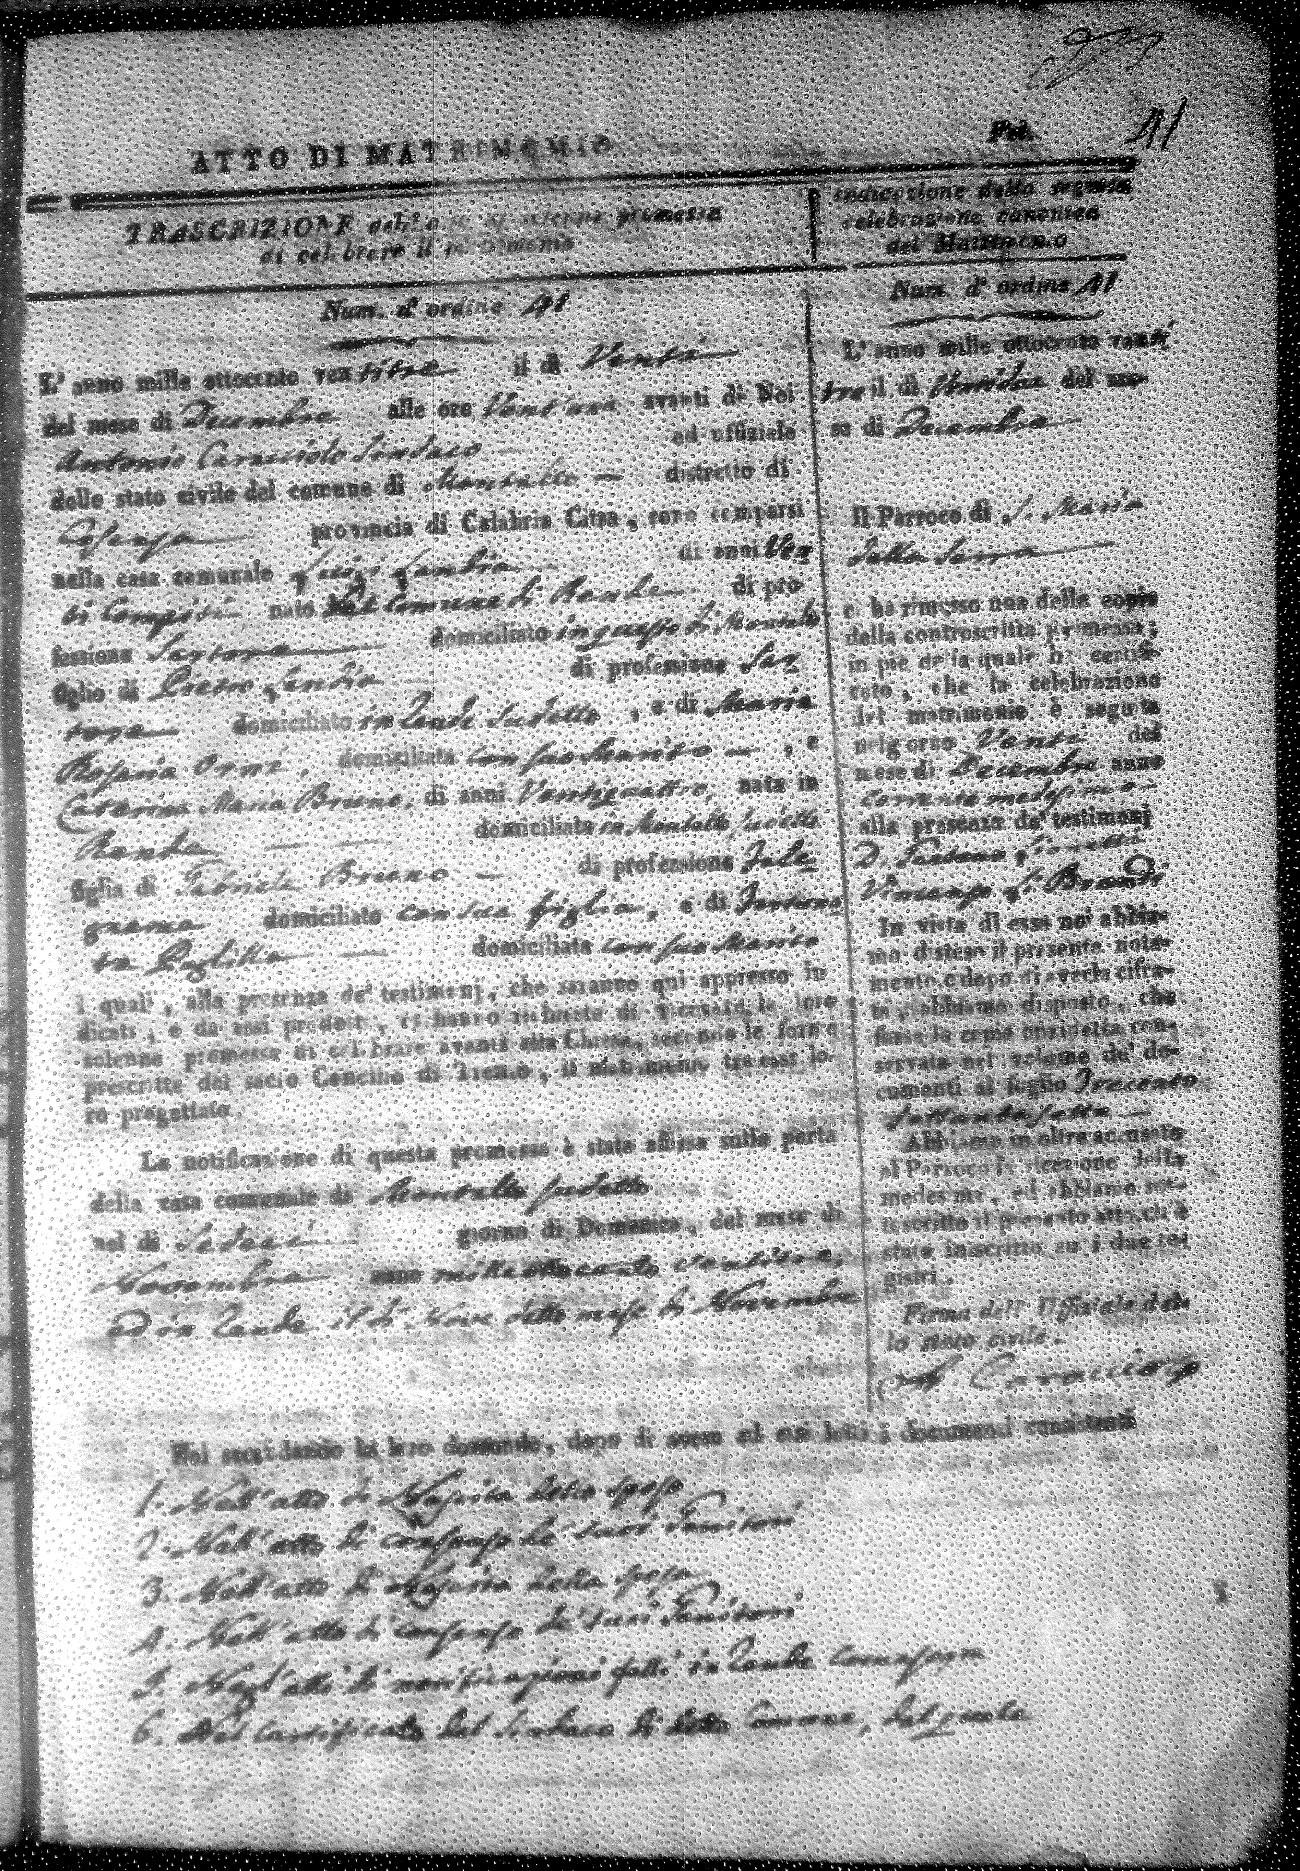 Fol. 41
ATTO DI MATRIMONIO
TRASCRIZIONE promessa
di celebrare il matrimonio
Num. d' ordine 41
L' anno mille ottocento ventitre il dì Venti
del mese di Decembre alle ore avanti di Noi
Antonio Caracciolo Sindaco ed uffiziale
dello stato civile del comune di Montalto distretto di
Cosenza provincia di Calabria Citra, sono comparsi
nella casa comunale Luigi di anni Ven
ti Compiti nato nel Comune di Rende di pro-
fessione domiciliato in questo di Montalto
figlio di Pietro di professione
domiciliato in Rende sudetto, e di Maria
Rosaria domiciliata con suo Marito, e
Caterina Maria Bruno, di anni Ventiquattro, nata in
Rende domiciliata in Montalto sudetto
figlia di Gabriele Bruno di professione Fale
gname domiciliato con sua figlia, e di
domiciliata con suo Marito
i quali, alla presenza de' testimonj, che saranno qui appresso in-
dicati, e da essi prodotti, ci hanno richiesto di ricevere la loro
solenne promessa di celebrare avanti alla Chiesa, secondo le forme
prescritte dal sacro Concilio di Trento, il matrimonio tra essi lo-
ro progettato.
La notificazione di questa promessa è stata affissa sulla porta
della casa comunale di Montalto sudetto
nel dì Sedeci giorno di Domenica, del mese di
Novembre anno mille ottocento ventitre,
ed in Rende il dì Nove detto mese di Novembre
Indicazione della seguita
celebrazione canonica
del Matrimonio
Num. d' ordine 41
L' anno mille ottocento venti
tre il dì del me-
se di Decembre
Il Parroco di S. Maria
della Serra
ci ha rimesso una delle copie
della controscritta promessa;
in piè della quale ha certifi-
cato, che la celebrazione
del matrimonio è seguita
nel giorno Venti del
mese di Decembre anno
corrente medesimo
alla presenza de' testimonj
D. Gaetano
Vincenzo
In vista di essa noi abbia-
mo disteso il presente nota-
mento, e dopo di averla cifra-
ta, abbiamo disposto, che
fosse la copia anzidetta con-
servata nel volume de' do-
cumenti al foglio Trecento
settantasette
Abbiamo in oltre accusato
al Parroco la ricezione della
medesima, ed abbiamo sot-
toscritto il presente atto, ch' è
stato inscritto su i due re-
gistri.
Firma dell' Uffiziale del-
lo stato civile.
A Caracciolo
Noi secondando la loro domanda, dopo di avere ad essi letti i documenti consistenti
1. Nell' atto di Nascita dello sposo
2. Nell' atto di consenso de' suoi Genitori
3. Nell' atto di Nascita della sposa
4. Nell' atto di consenso de' suoi Genitori
5. Negl' atti di notificazioni fatti in Rende
6. Nel Certificato del Sindaco di detto Comune, dal quale